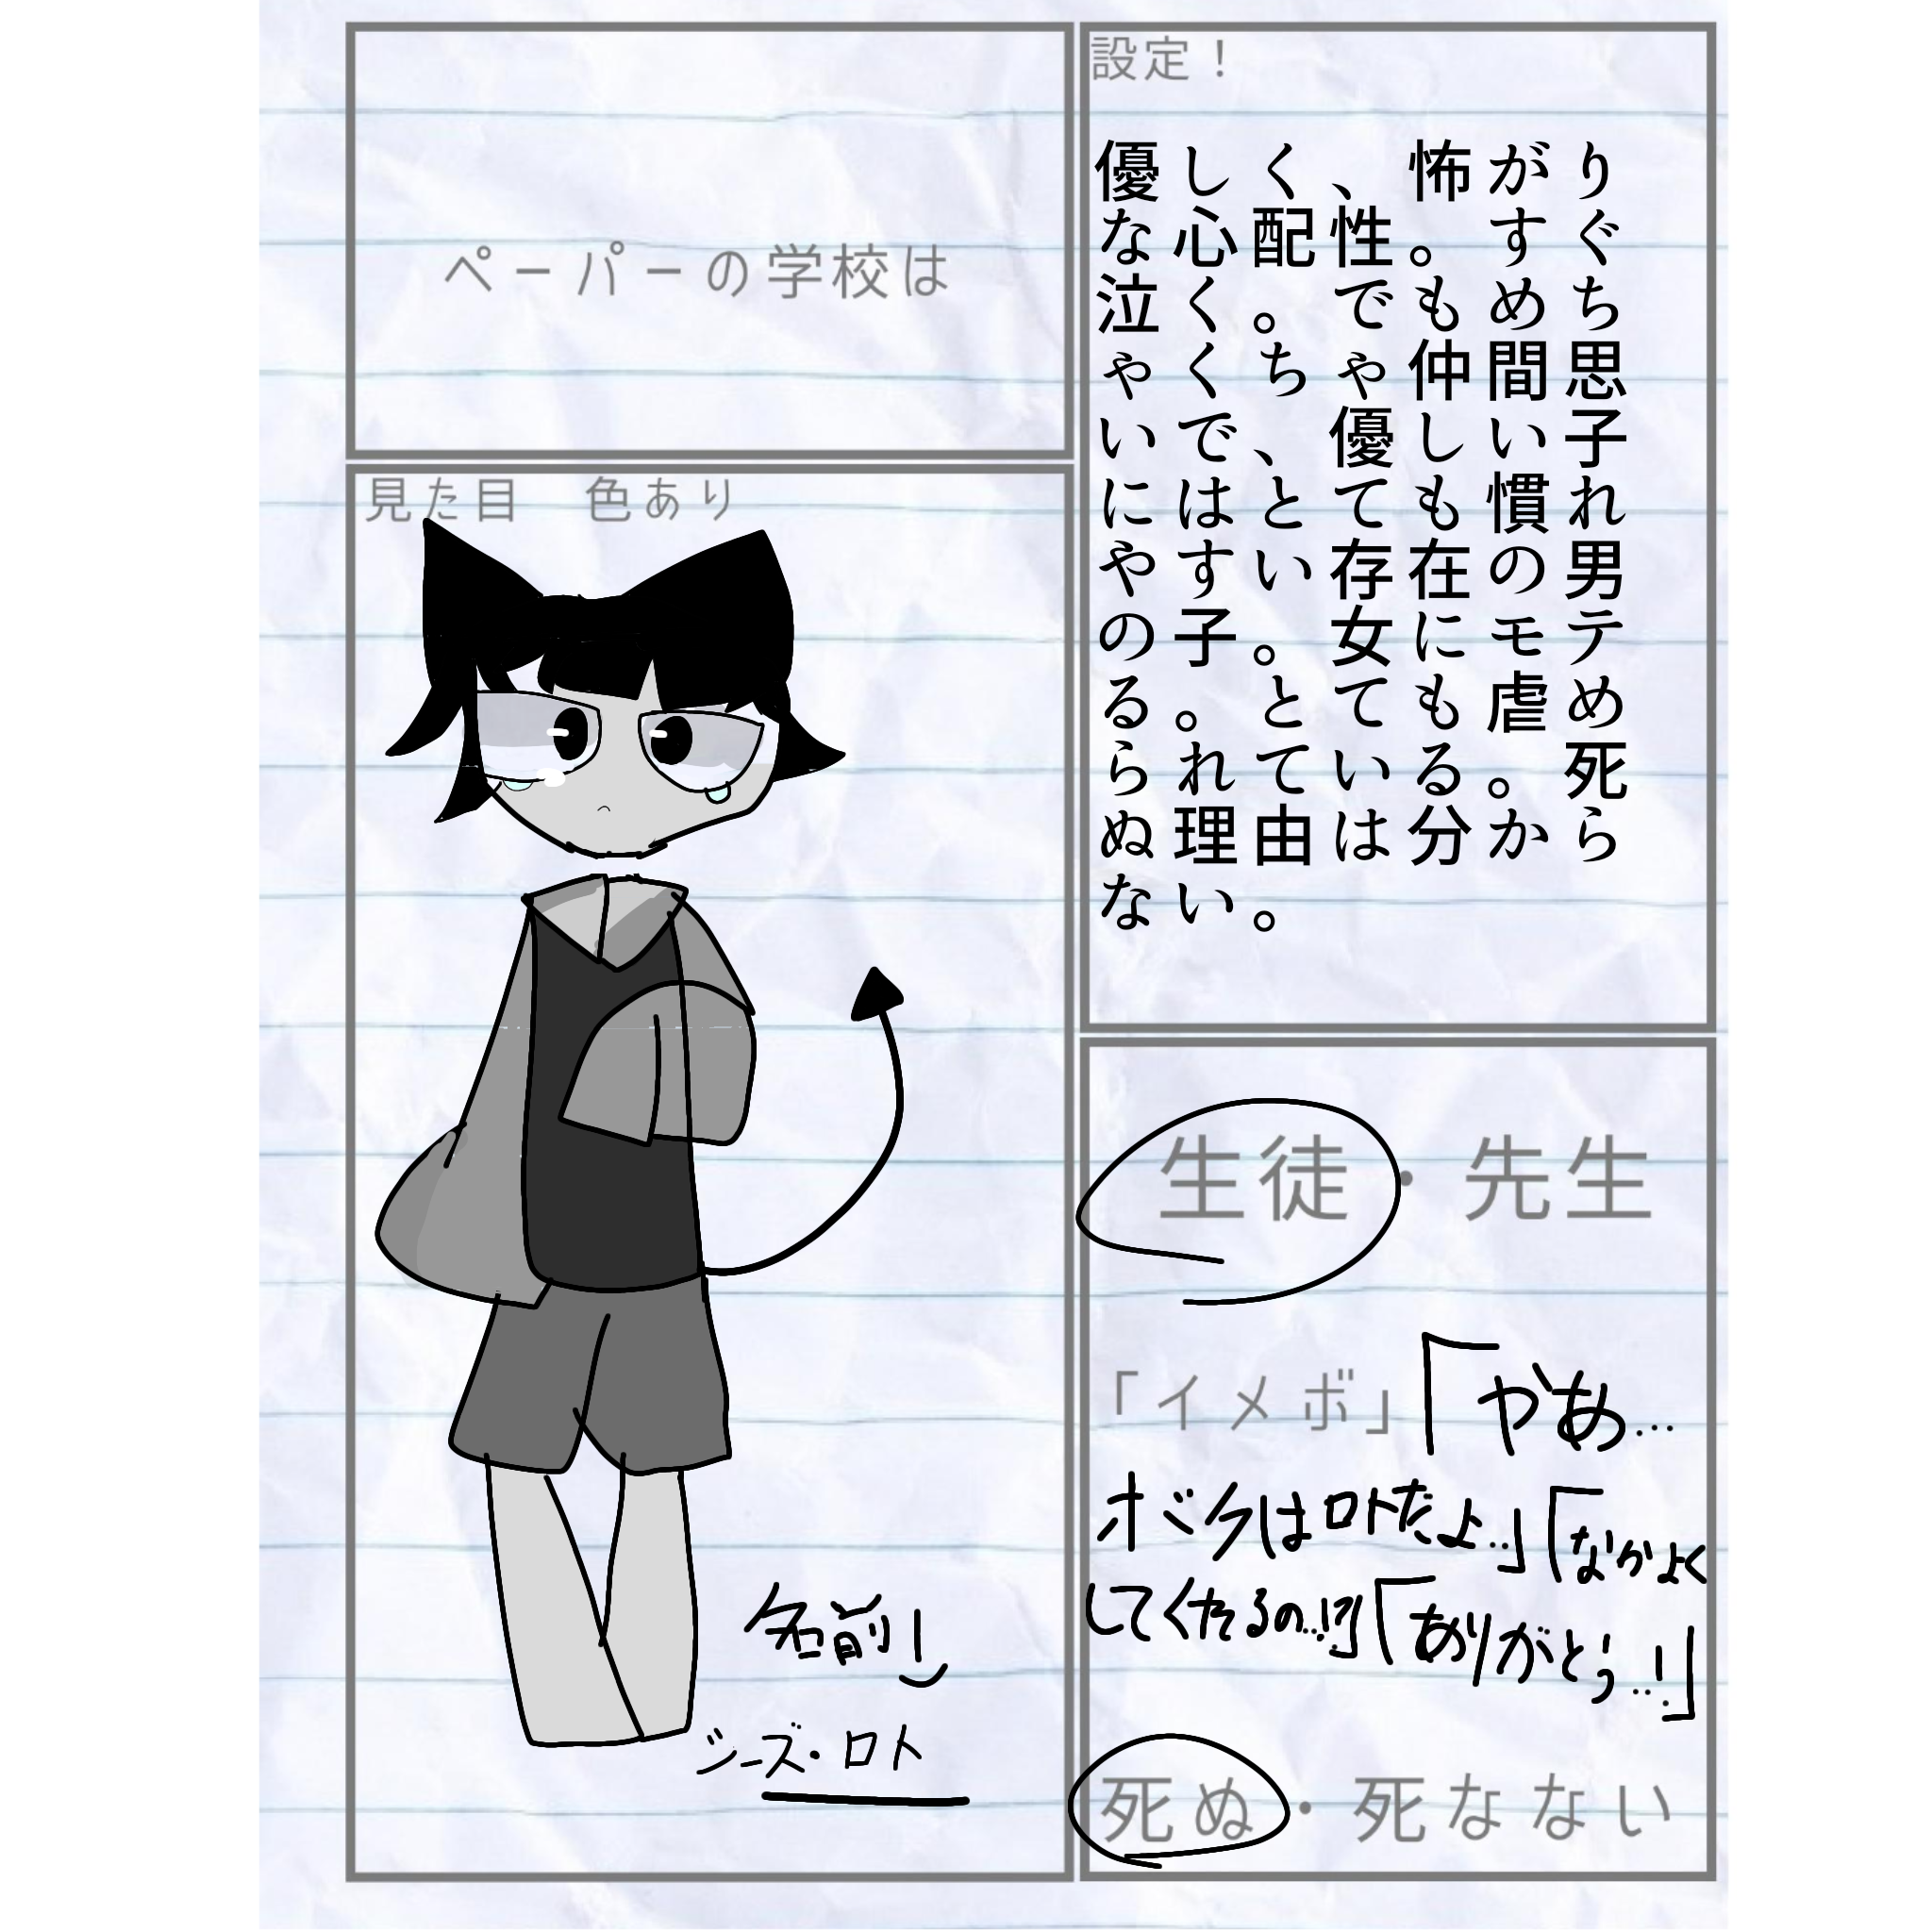 ペーパーの学校は
見た目　色あり
名前!
シーズ・ロト
設定！
優しく、怖がり
な心配性。すぐ
泣く。でもめち
ゃくちゃ仲間思
いで、優しい子
にはとても慣れ
やすい存在の男
の子。女にモテ
る。とても虐め
られている。死
ぬ理由は分から
ない。
生徒・先生
「イメボ」「やあ…
ボクはロトだよ…」「なかよく
してくれるの…!?」「ありがとう…!」
死ぬ・死なない